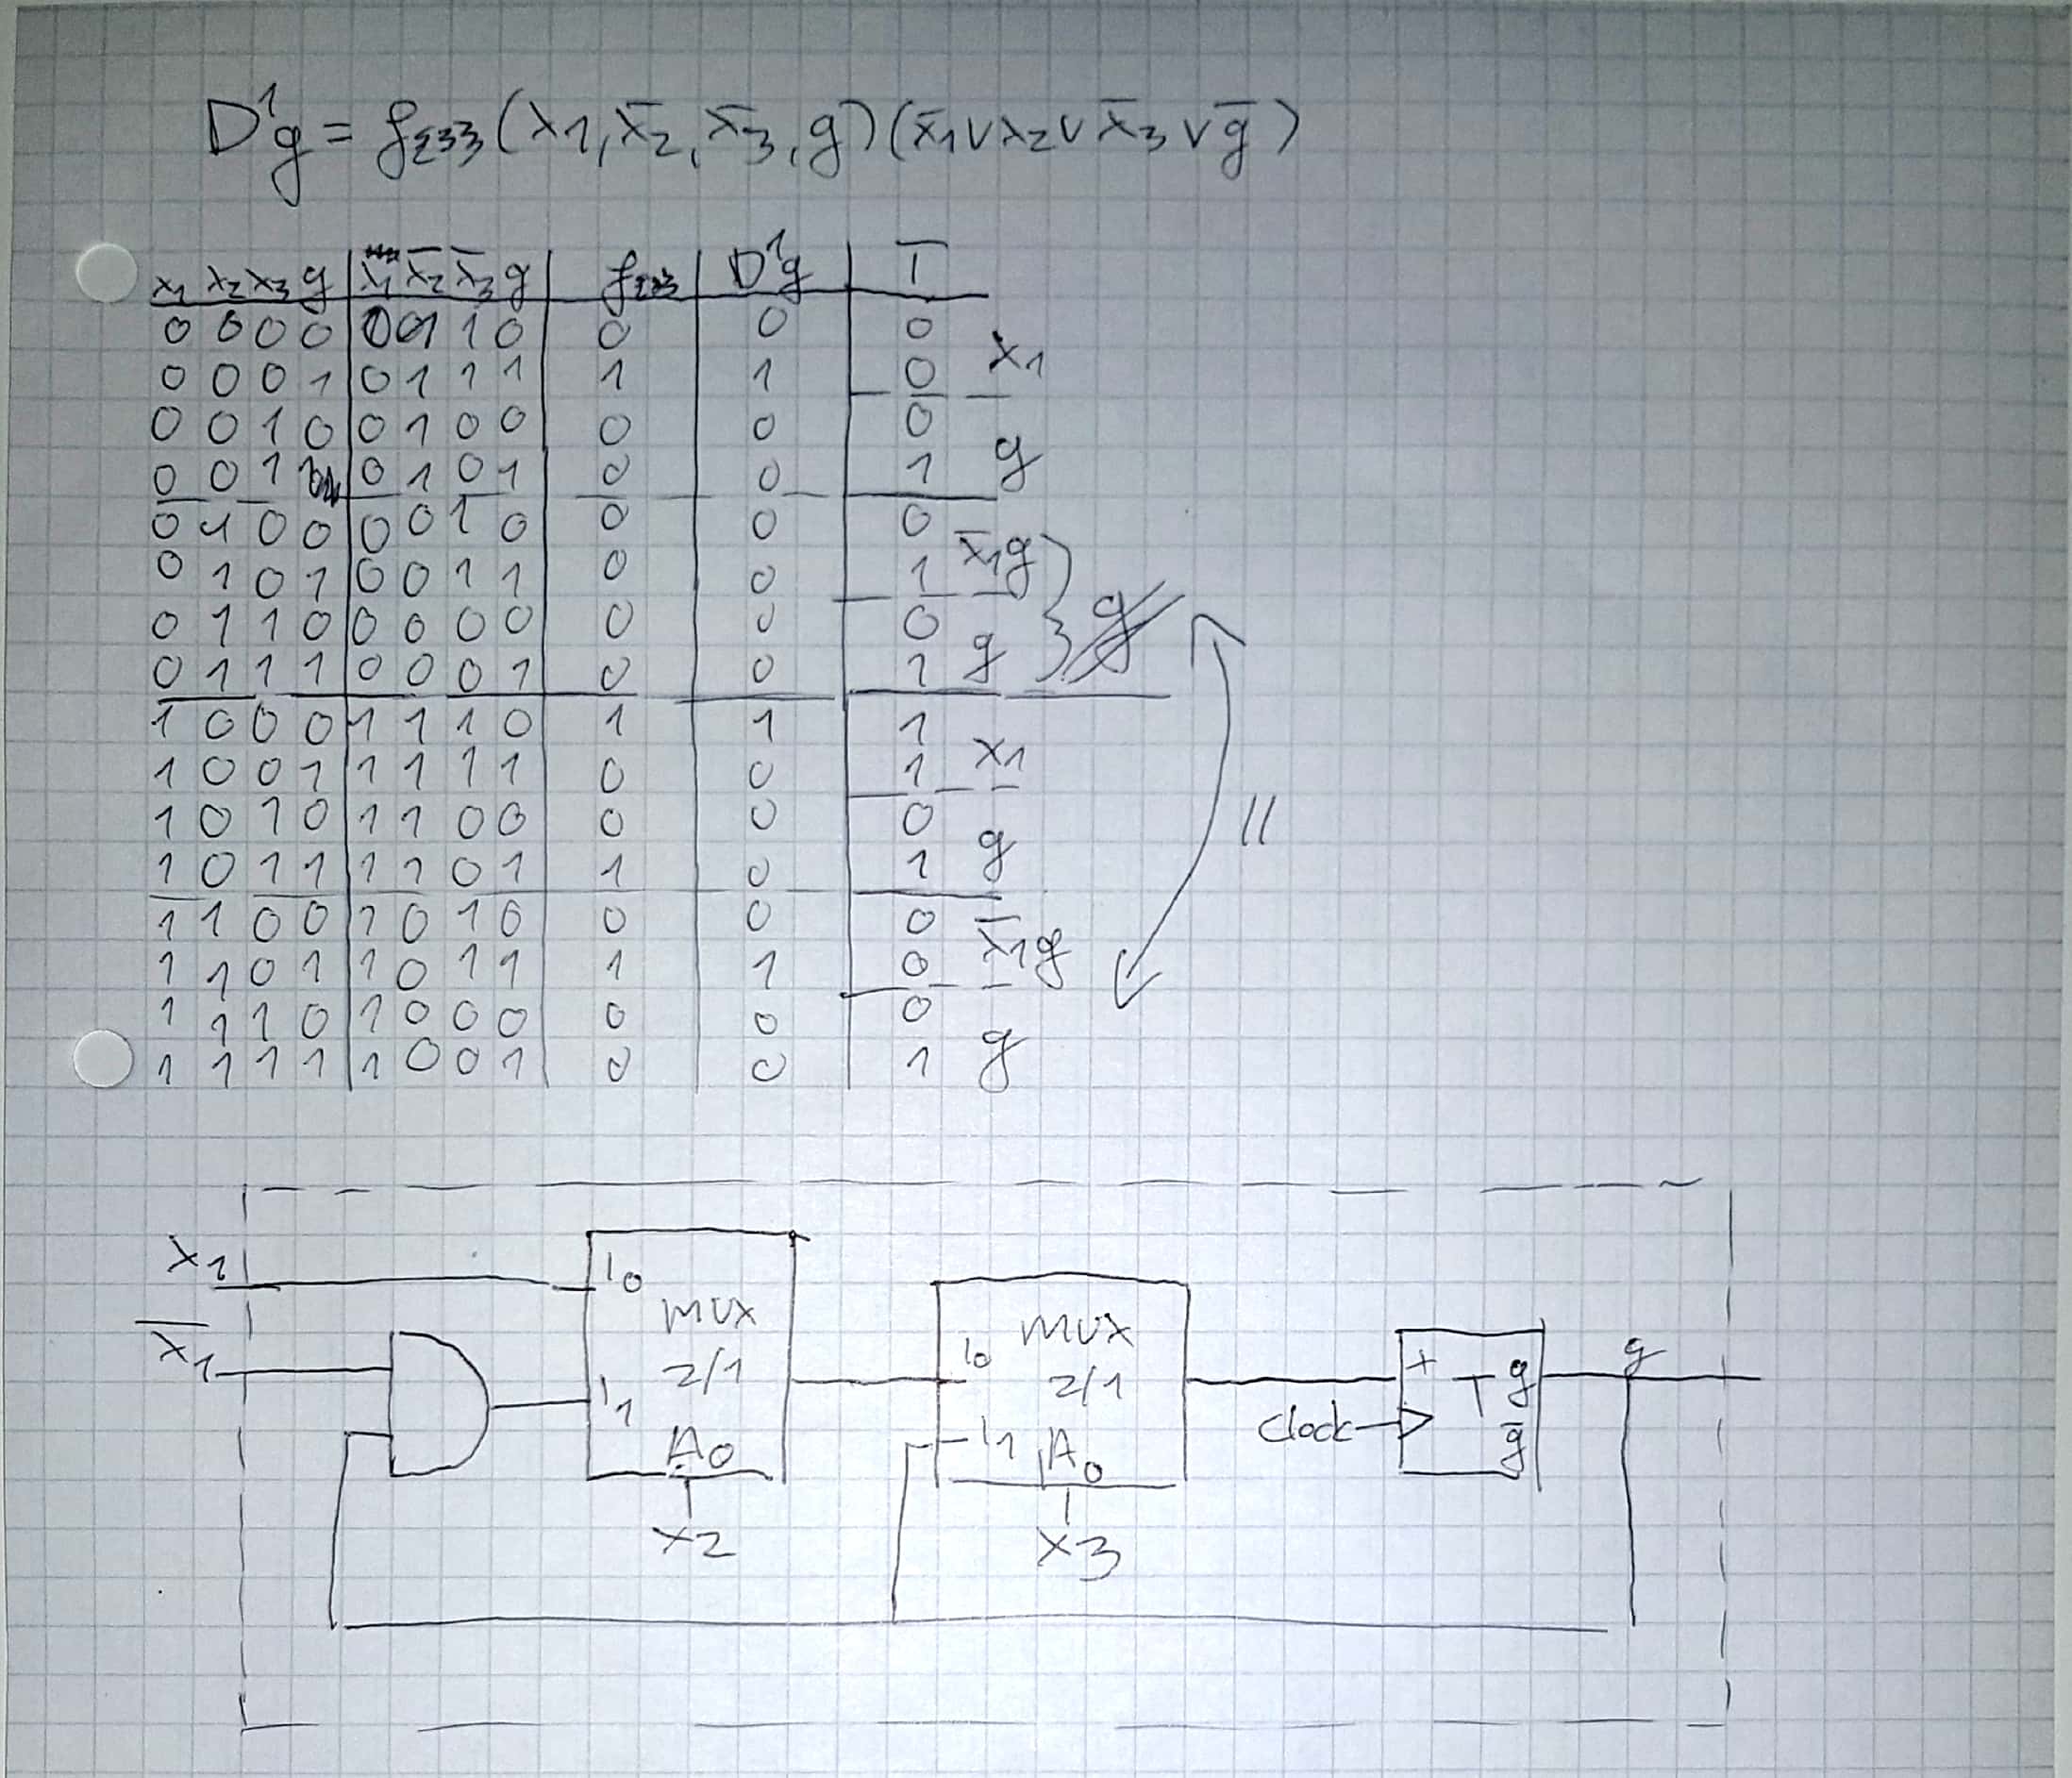 D¹g = f{3}(x1, x̄2, x̄3, g)(x̄1 ∨ x2 ∨ x̄3 ∨ ḡ)
x1 x2 x3 g | x1 x̄2 x̄3 g | f{3} | D¹g | T
0 0 0 0 | 0 1 1 0 | 0 | 0 | 0
0 0 0 1 | 0 1 1 1 | 1 | 1 | 0 x1
0 0 1 0 | 0 1 0 0 | 0 | 0 | 0
0 0 1 1 | 0 1 0 1 | 0 | 0 | 1 g
0 1 0 0 | 0 0 1 0 | 0 | 0 | 0
0 1 0 1 | 0 0 1 1 | 0 | 0 | 1 x̄1g
0 1 1 0 | 0 0 0 0 | 0 | 0 | 0 } g
0 1 1 1 | 0 0 0 1 | 0 | 0 | 1 g
1 0 0 0 | 1 1 1 0 | 1 | 1 | 1
1 0 0 1 | 1 1 1 1 | 0 | 0 | 1 x1
1 0 1 0 | 1 1 0 0 | 0 | 0 | 0 //
1 0 1 1 | 1 1 0 1 | 1 | 0 | 1 g
1 1 0 0 | 1 0 1 0 | 0 | 0 | 0
1 1 0 1 | 1 0 1 1 | 1 | 1 | 0 x̄1g
1 1 1 0 | 1 0 0 0 | 0 | 0 | 0
1 1 1 1 | 1 0 0 1 | 0 | 0 | 1 g
x1
x̄1
I0
MUX
2/1
I1
A0
x2
I0
MUX
2/1
I1
A0
x3
Clock
+ T g
ḡ
g